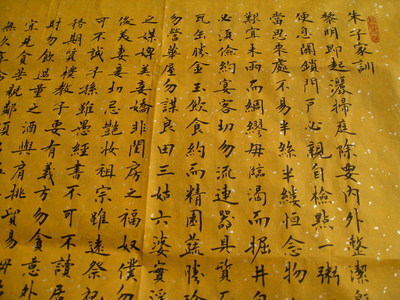 朱子家訓
黎明即起灑掃庭除要內外整潔既
便息關鎖門戶必親自檢點一粥
當思來處不易半絲半縷恒念物
艱宜未雨而綢繆毋臨渴而掘井自
必須儉約宴客切勿流連器具質
瓦缶勝金玉飲食約而精園蔬勝珍
勿營華屋勿謀良田三姑六婆實淫
之媒婢美妾嬌非閨房之福奴僕勿
俊美妻妾切忌艷妝祖宗雖遠祭祀
可不誠子孫雖愚經書不可不讀居
務期質樸教子要有義方勿貪意外
財勿飲過量之酒與肩挑貿易毋
宜見貧苦親鄰須
無久享